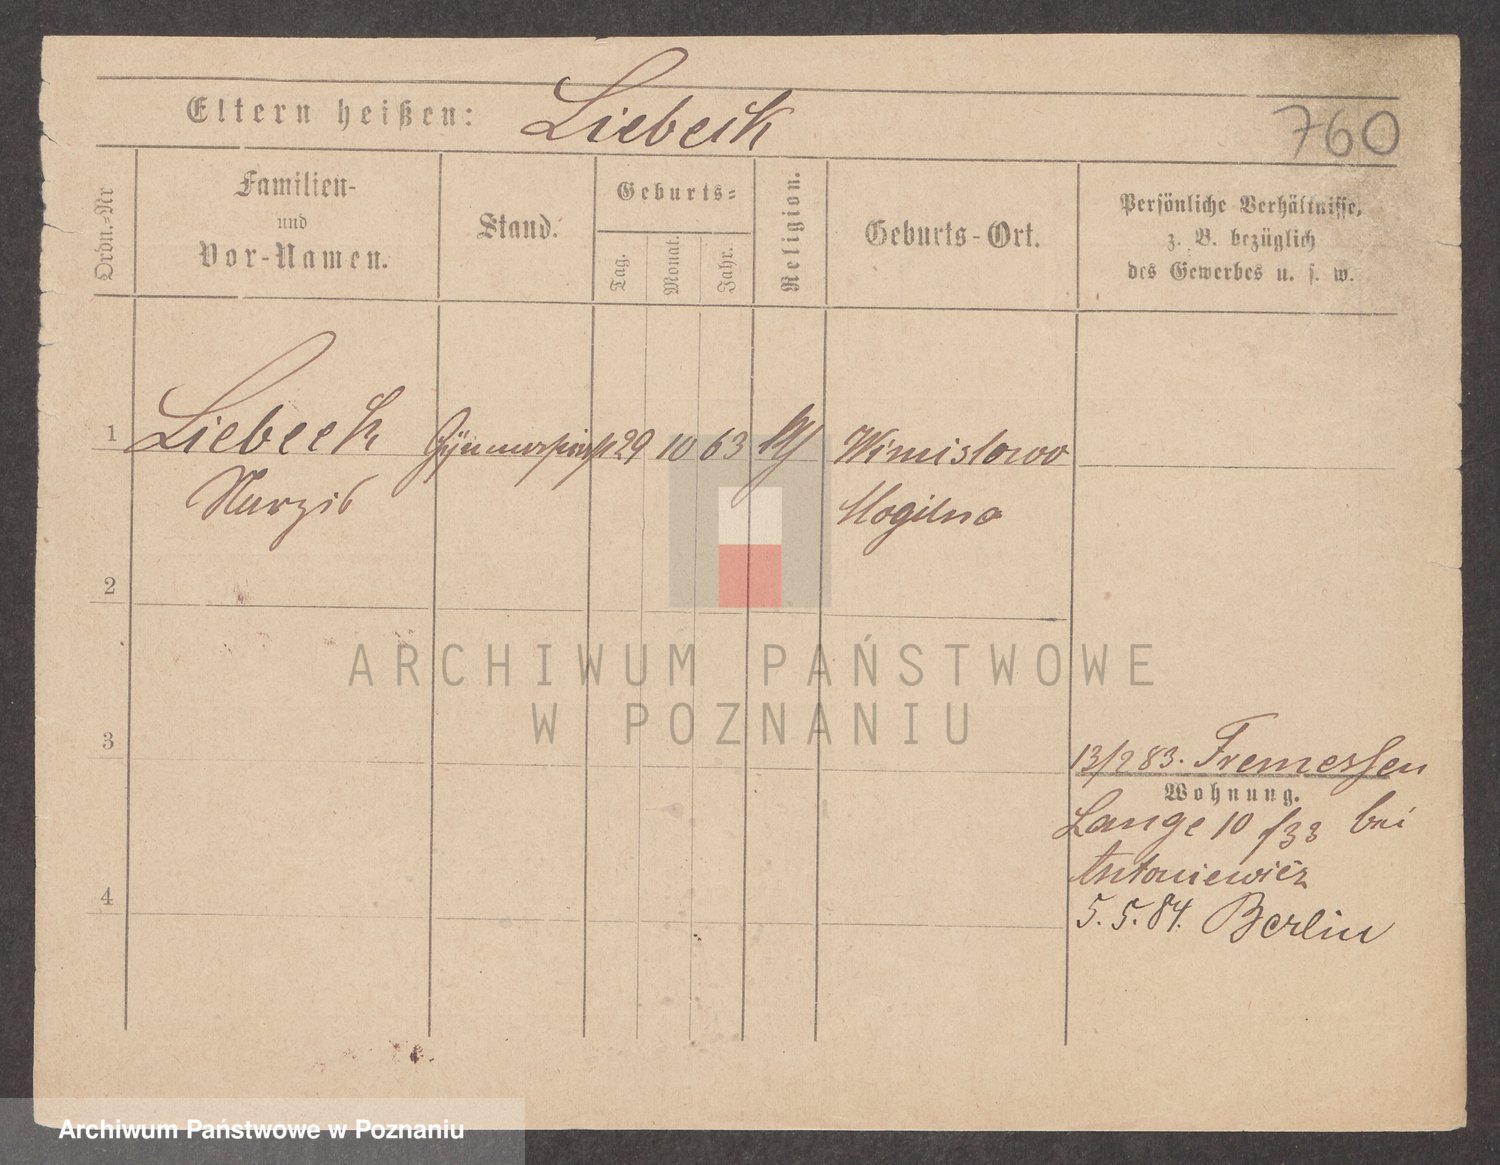 Eltern heißen: Liebeck
760
Ordn.-Nr
Familien-
und
Vor-Namen.
Stand.
Geburts-
Tag.
Monat.
Jahr.
Religion.
Geburts-Ort.
Persönliche Verhältnisse,
z. B. bezüglich
des Gewerbes u. s. w.
1 Liebeck 29 10 63 Wimislowo
Narziß Mogilno
2
ARCHIWUM PAŃSTWOWE
W POZNANIU
3
13/2 83. Tremessen
Wohnung.
Lange 10 bei
Antoniewicz
4
5. 5. 84. Berlin
Archiwum Państwowe w Poznaniu